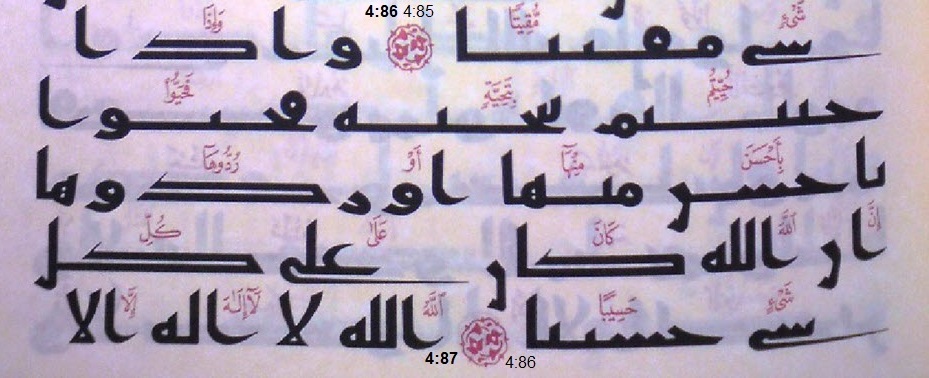 4:86 4:85
شَيْءٍ مُّقِيتًا وَإِذَا
شى مقيتا واذا
حُيِّيتُم بِتَحِيَّةٍ فَحَيُّوا
حييتم بتحيه فحيوا
بِأَحْسَنَ مِنْهَا أَوْ رُدُّوهَا
باحسن منها او ردوها
إِنَّ اللَّهَ كَانَ عَلَىٰ كُلِّ
ان الله كان على كل
شَيْءٍ حَسِيبًا اللَّهُ لَا إِلَٰهَ إِلَّا
شى حسيبا الله لا اله الا
4:87 4:86